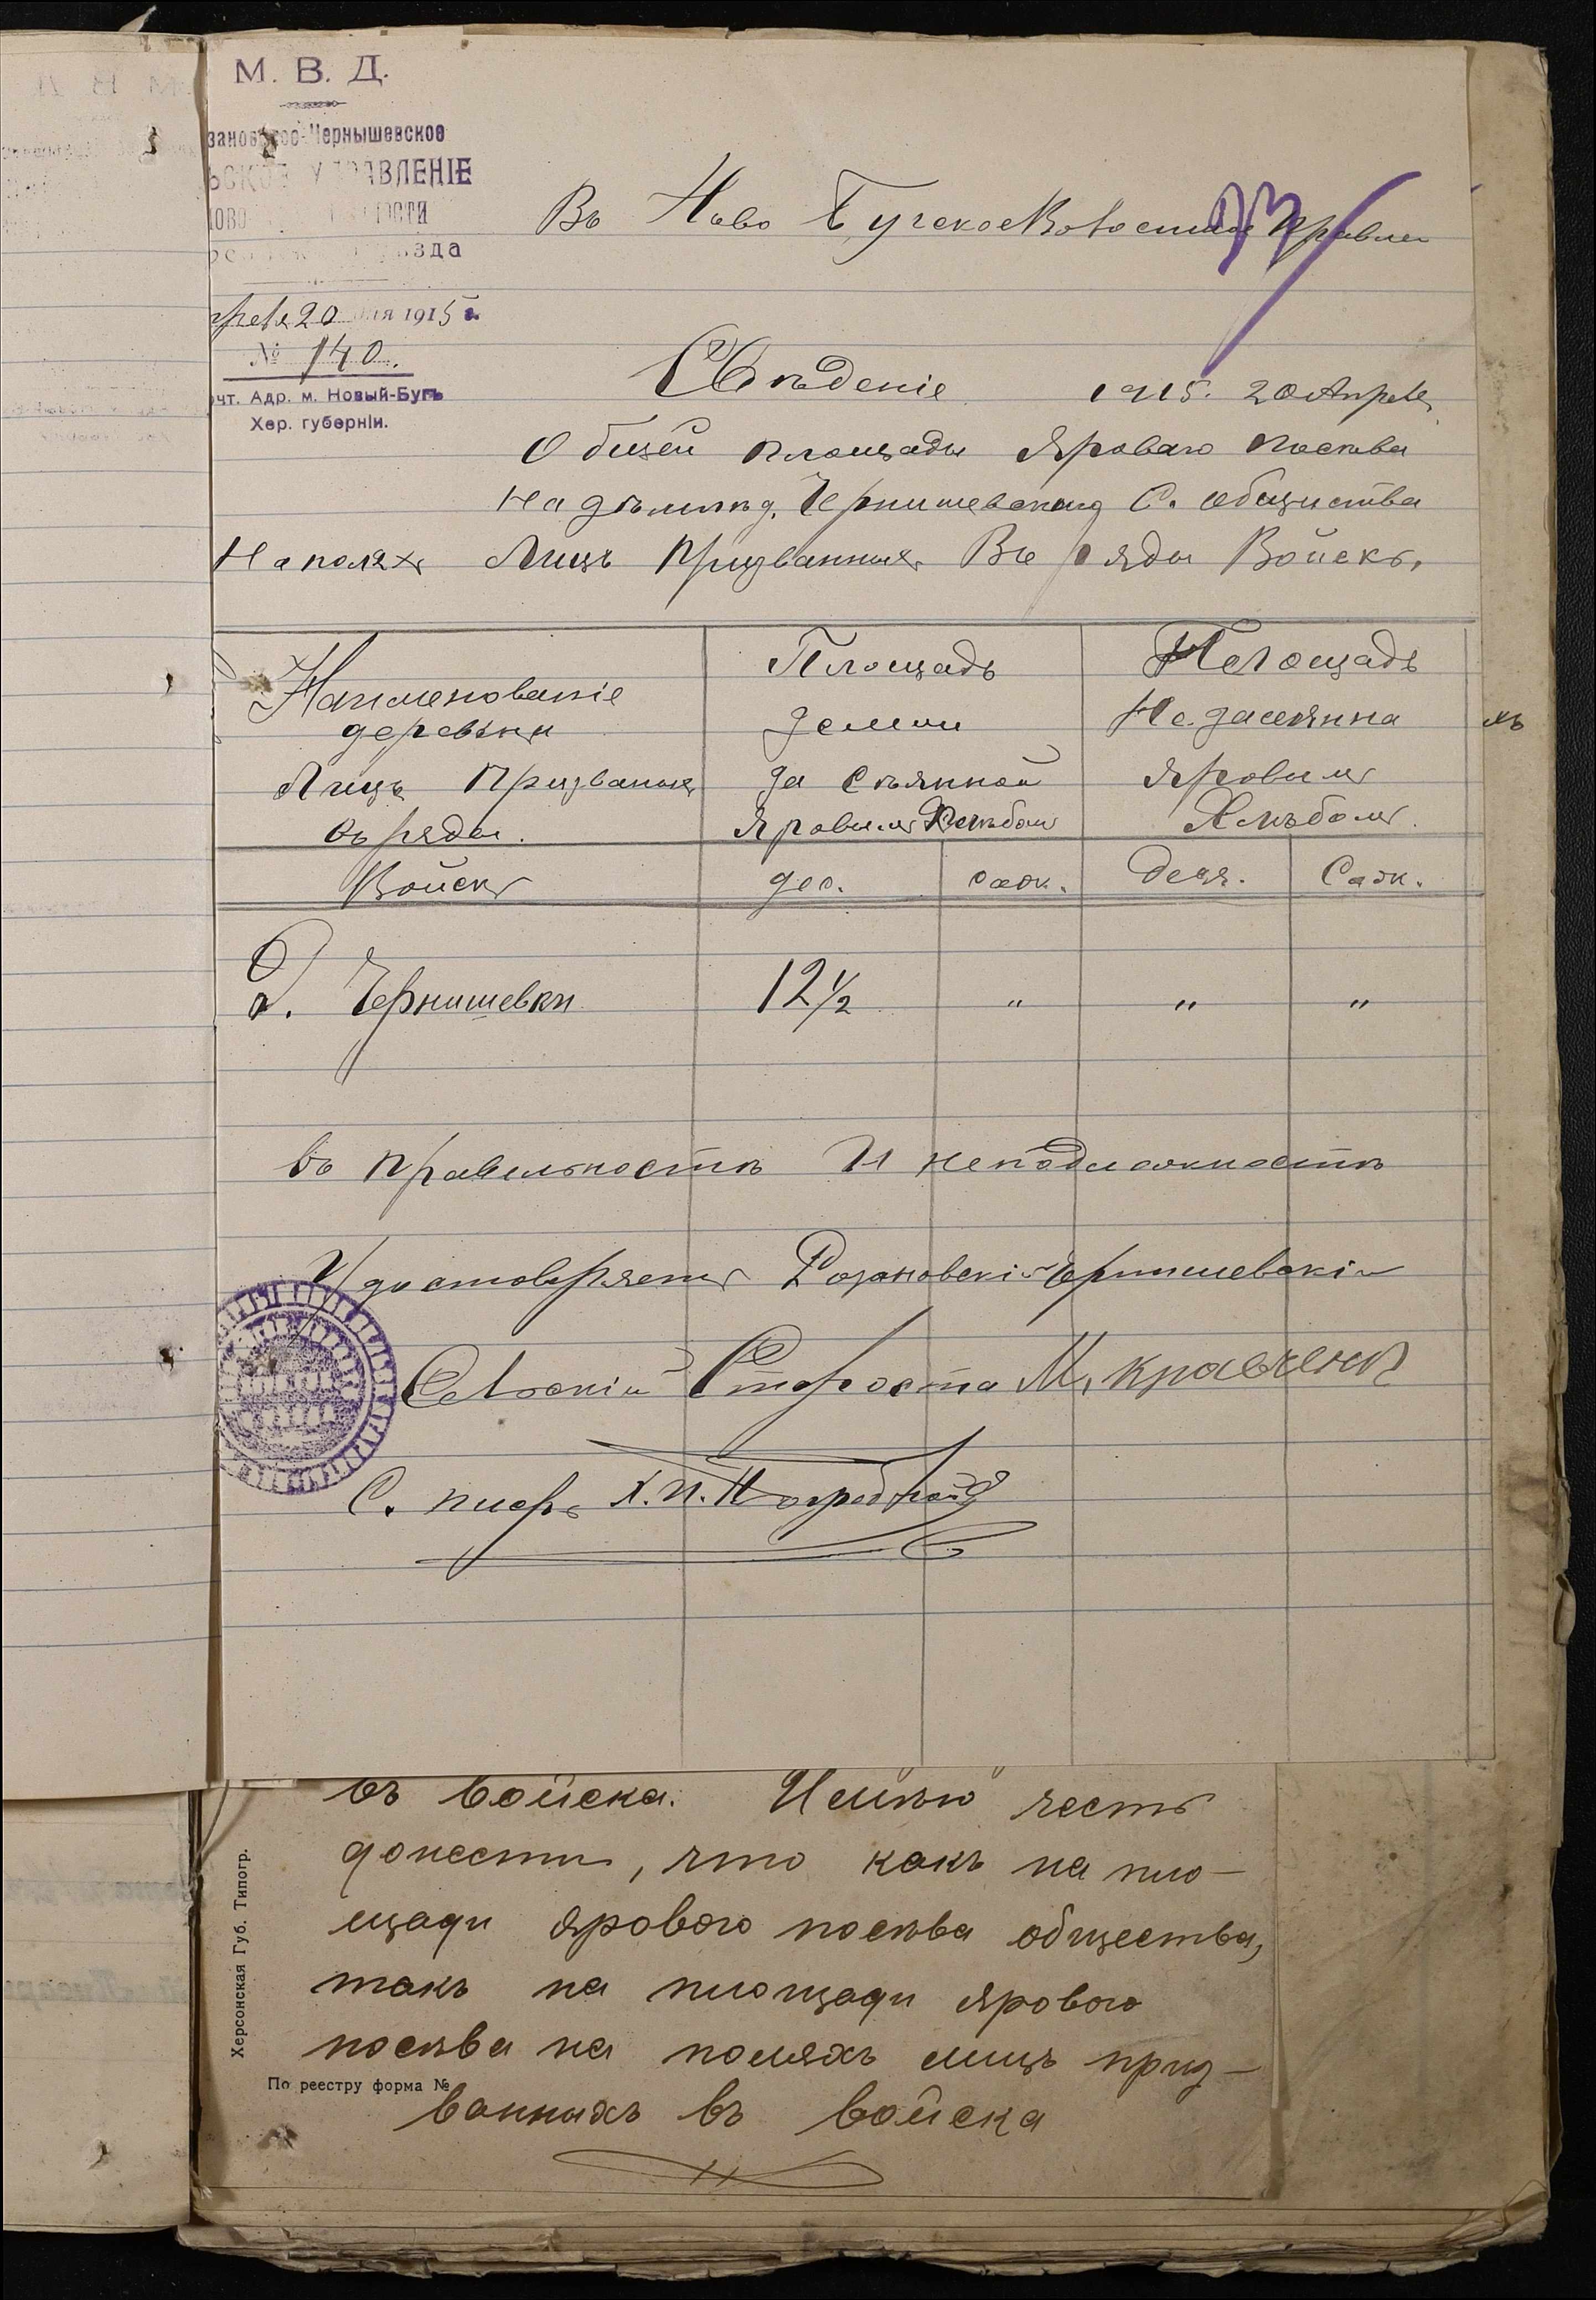 М. В. Д.
зановское-Чернышевское
ЬСКОЕ УПРАВЛЕНІЕ
зда
преля 20 дня 1915 г.
№ 140.
чт. Адр. м. Новый-Бугъ
Хер. губерніи.
93
Въ Ново Бугское Волостное Правле
Свѣденіе 1915. 20 Апреля
Общей площады Яроваго посѣва
На дѣлянкѣ. Чернишевскаго С. общиства
На поляхъ Лицъ Призванныхъ Въ ряды Войскъ,
Наименованіе деревьни Лицъ Призваныхъ въ ряды. Войскъ
Площадь земли За Сѣянной Яровимъ Хлѣбомъ
Площадь Не засеянна Яровимъ Хлѣбомъ.
дес. саж. Деся. Саж.
Д. Чернишевки 12 ½ " " "
мъ
въ правильностѣ И неподложностѣ
Удостоверяетъ Розановскій Чернишевскій
Селькій Староста М, кравченко
С. писрь Х. И. Погребной
въ войска. Имѣю честь
донести, что какъ на пло-
щади ярового посѣва общества,
такъ на площади ярового
посѣва на поляхъ лицъ приз-
ванныхъ въ войска
Херсонская Губ. Типогр.
По реестру форма №